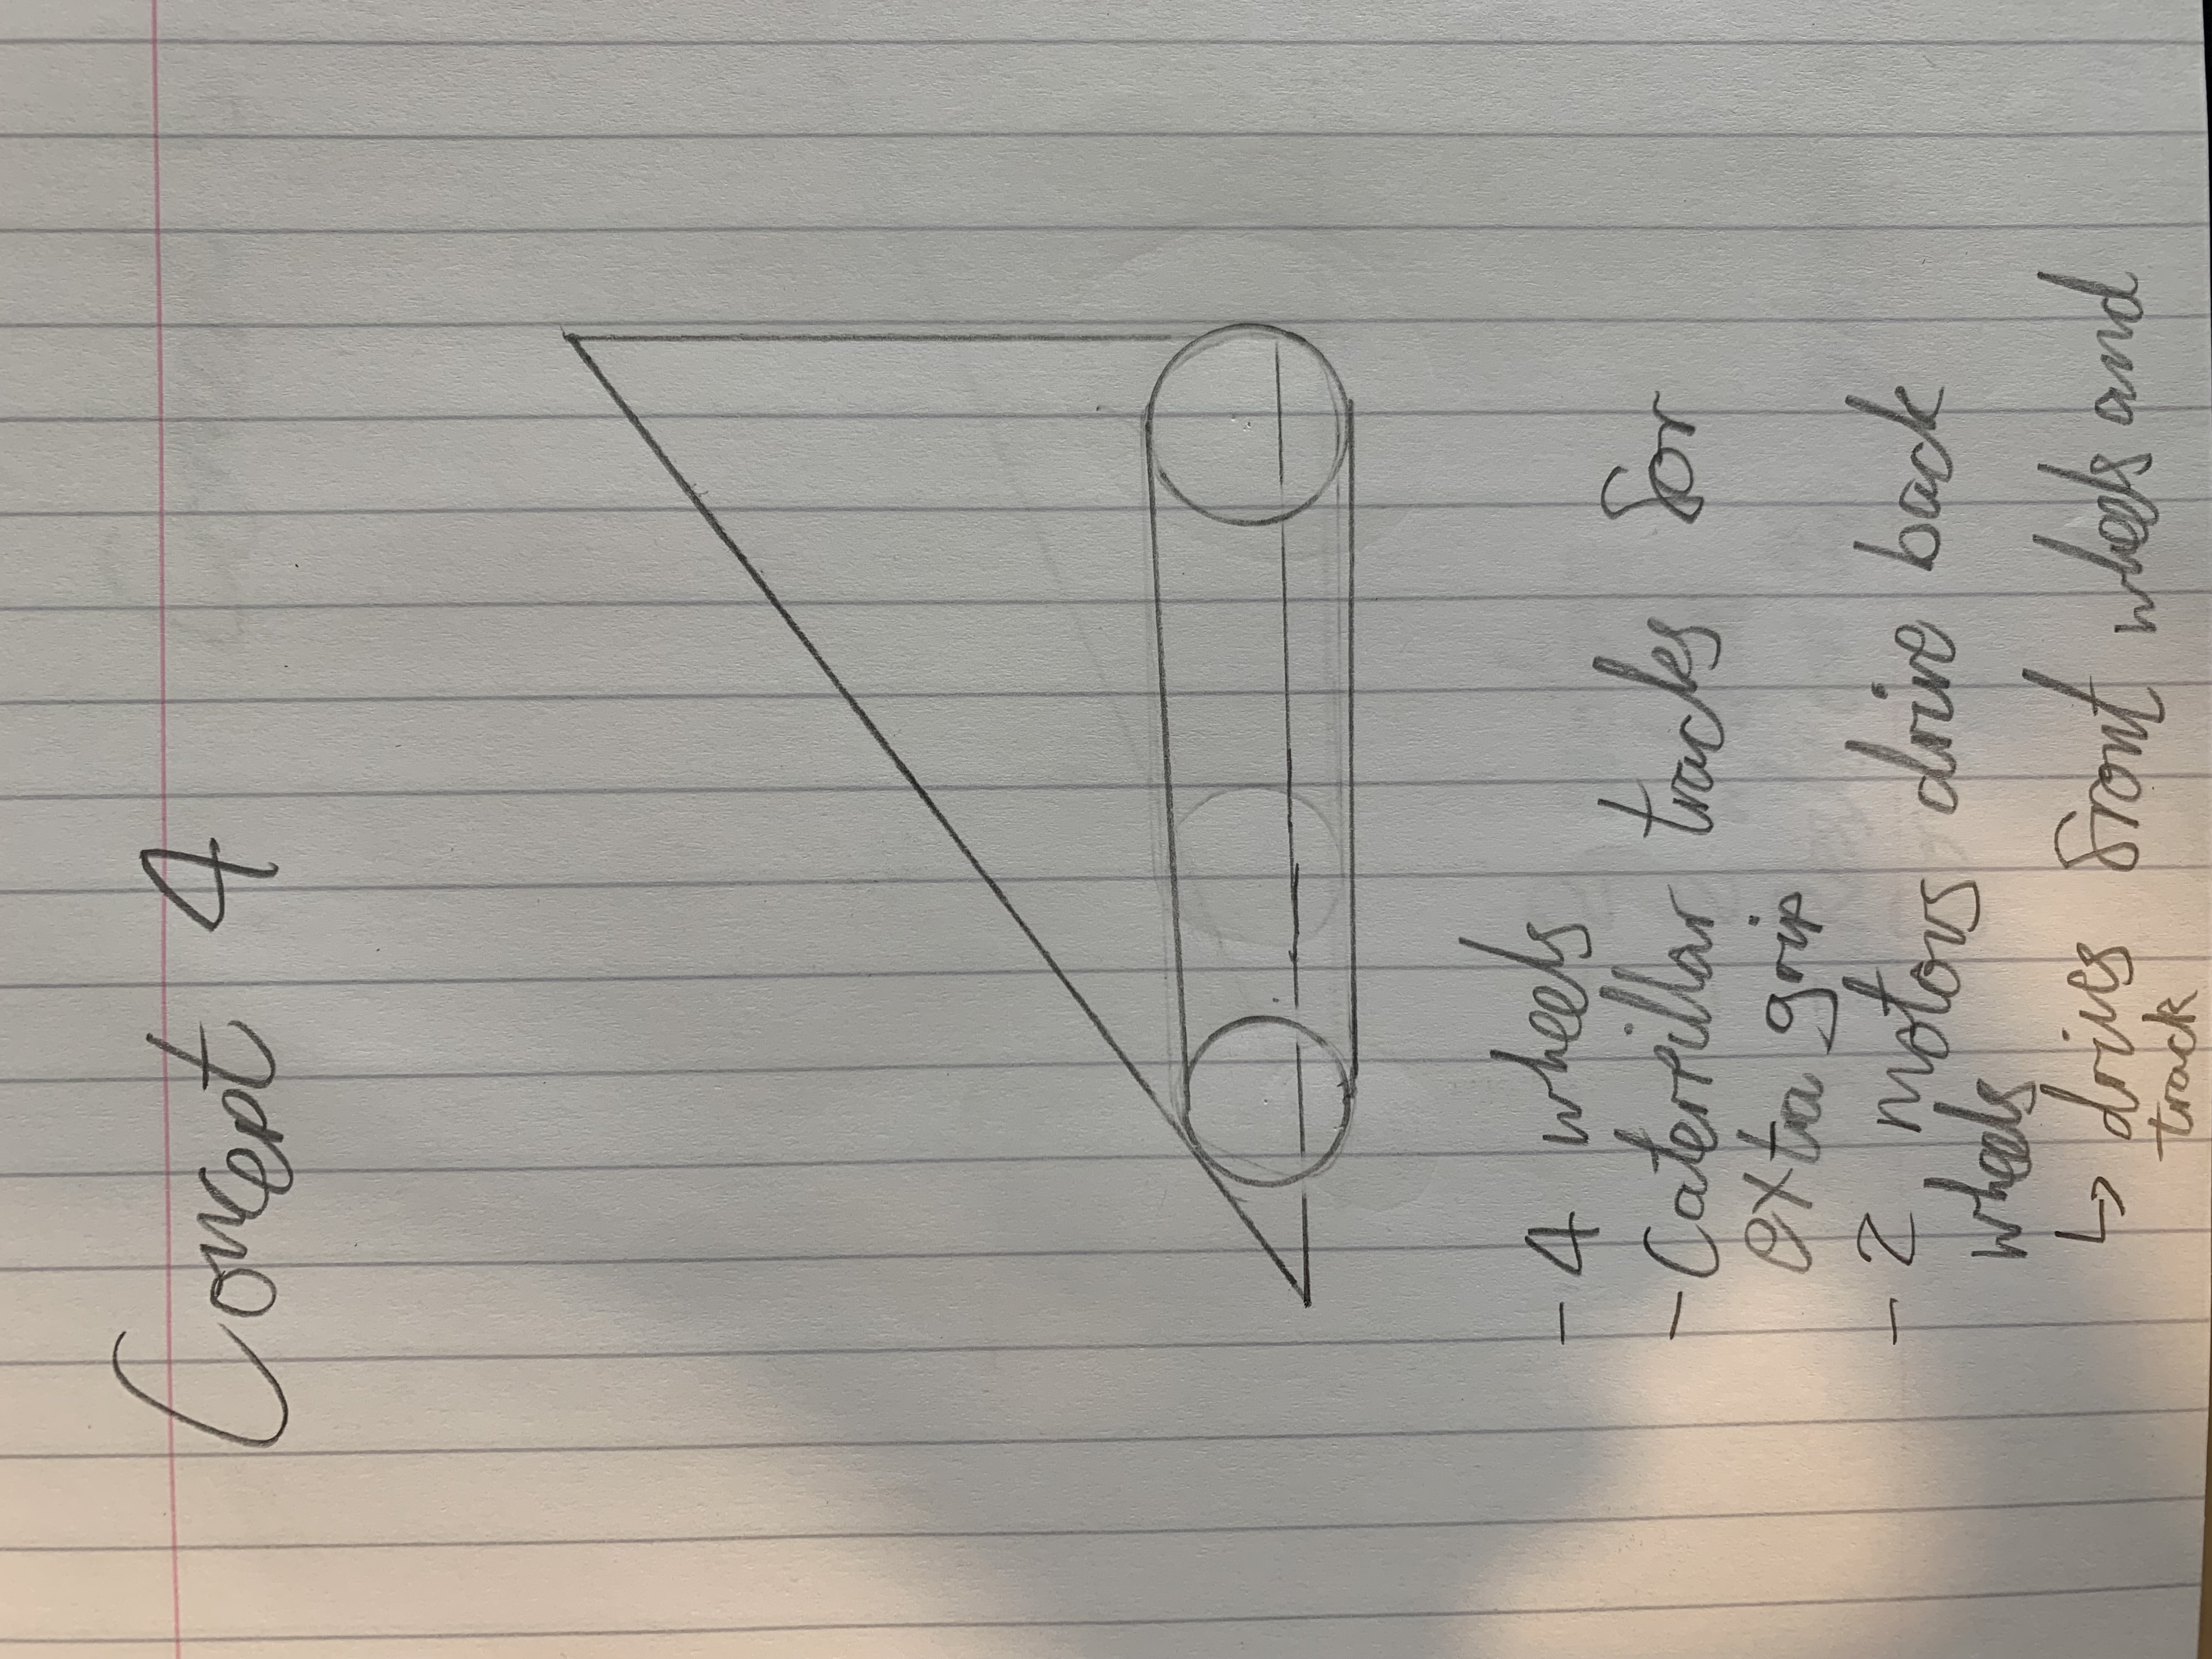 Concept 4
- 4 wheels
- Caterpillar tracks for
extra grip
- 2 motors drive back
wheels
↳ drives front wheels and
track